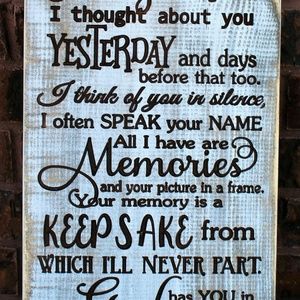 I thought about you
YESTERDAY and days
before that too.
I think of you in silence,
I often SPEAK your NAME
All I have are
Memories
and your picture in a frame.
Your memory is a
KEEPSAKE from
WHICH I'LL NEVER PART.
has YOU in